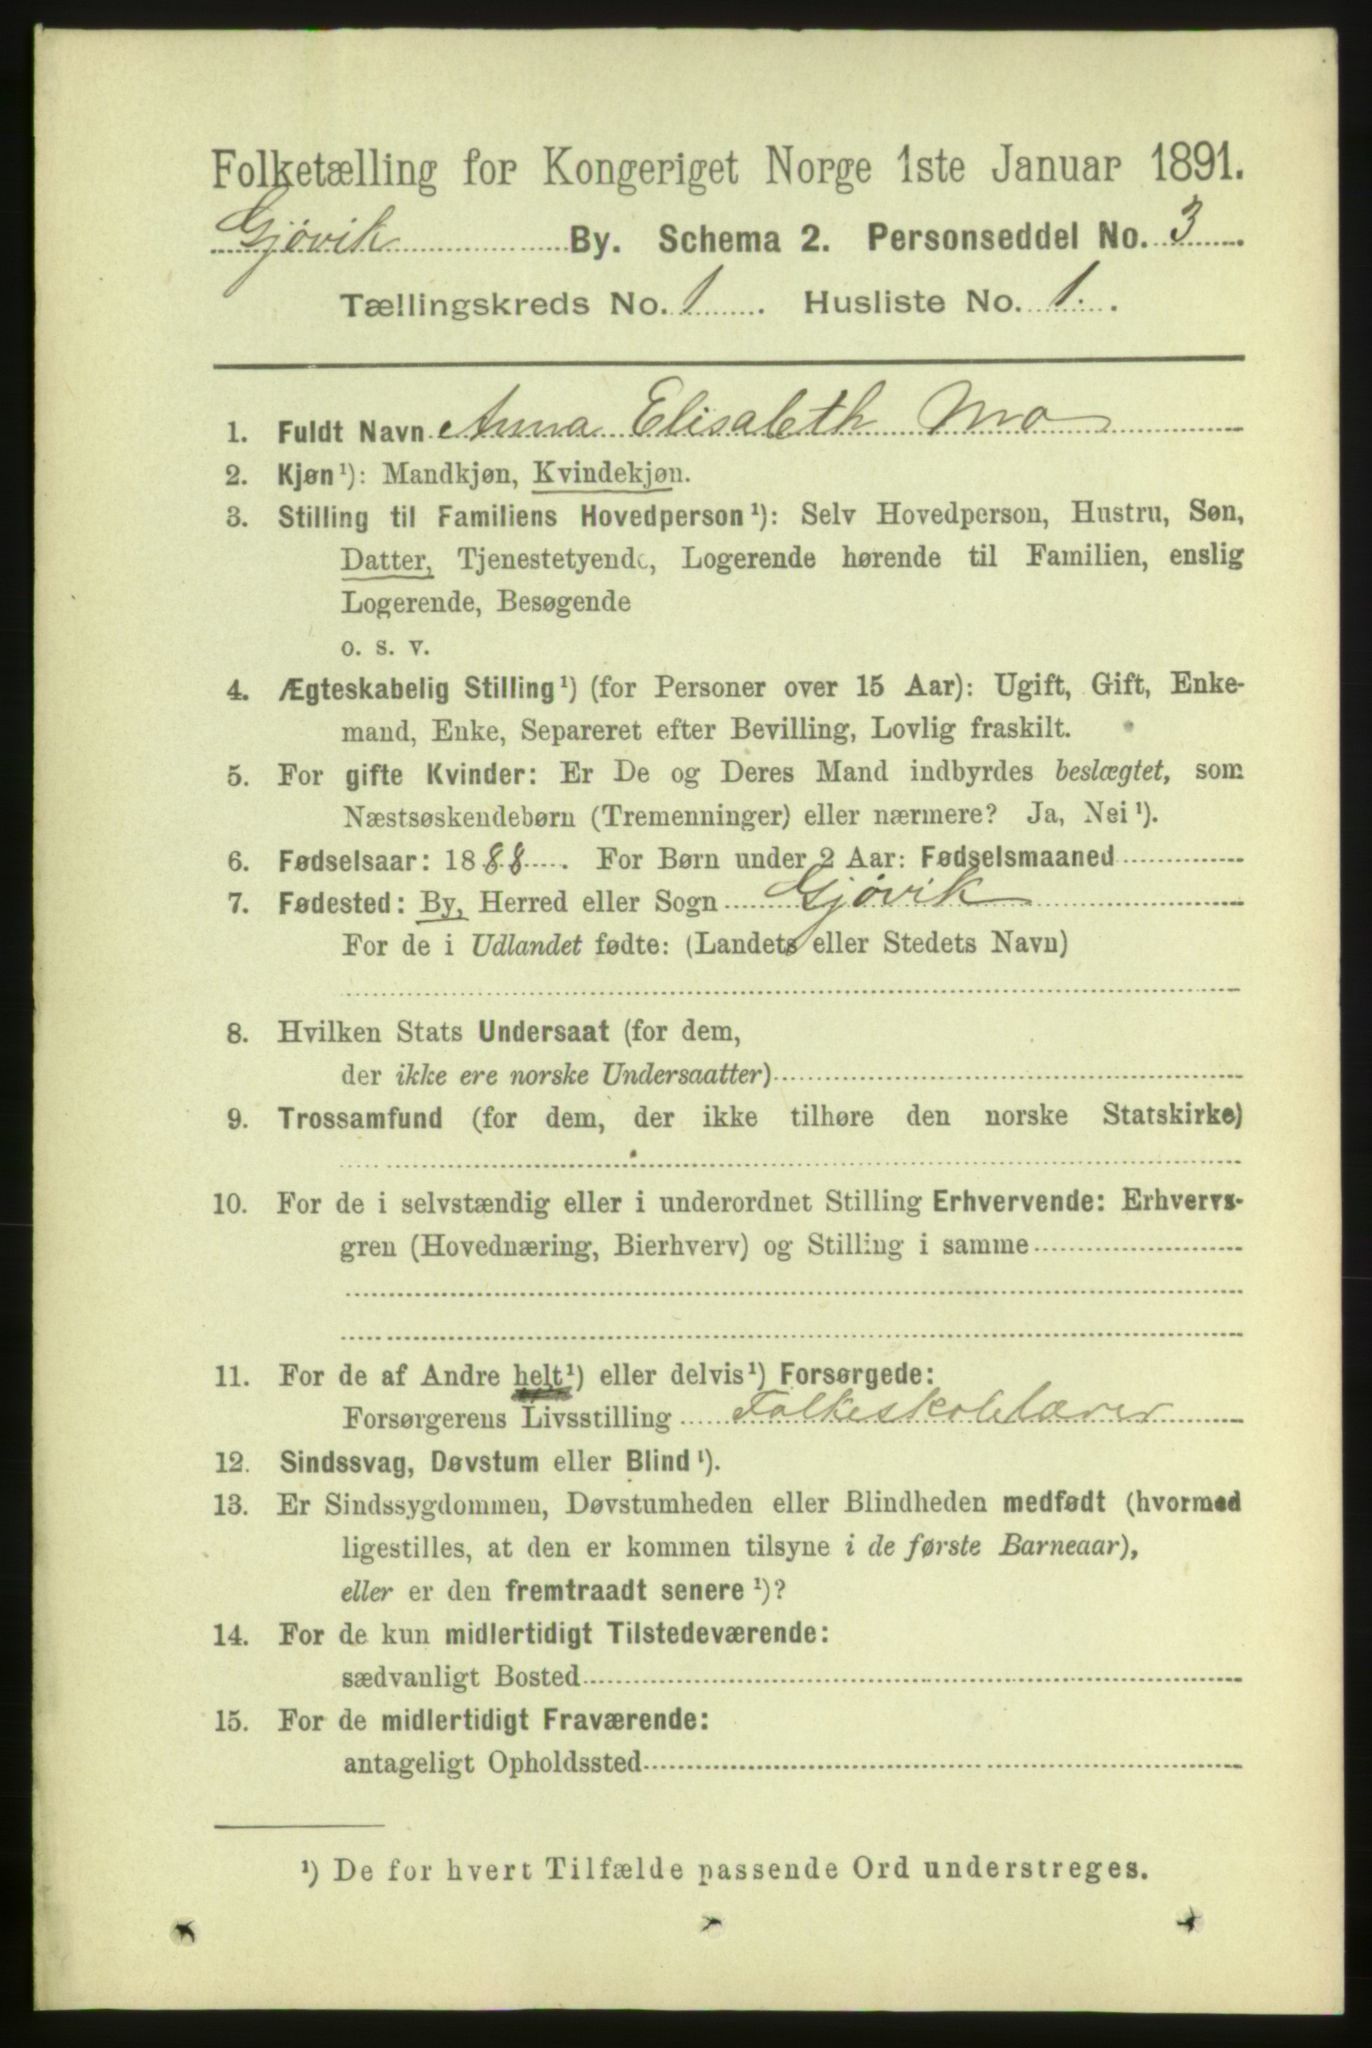 Folketælling for Kongeriget Norge 1ste Januar 1891.
Gjøvik By. Schema 2. Personseddel No. 3.
Tællingskreds No. 1. Husliste No. 1.
1. Fuldt Navn Anna Elisabeth Mo
2. Kjøn¹): Mandkjøn, Kvindekjøn.
3. Stilling til Familiens Hovedperson¹): Selv Hovedperson, Hustru, Søn,
Datter, Tjenestetyende, Logerende hørende til Familien, enslig
Logerende, Besøgende
o. s. v.
4. Ægteskabelig Stilling¹) (for Personer over 15 Aar): Ugift, Gift, Enke-
mand, Enke, Separeret efter Bevilling, Lovlig fraskilt.
5. For gifte Kvinder: Er De og Deres Mand indbyrdes beslægtet, som
Næstsøskendebørn (Tremenninger) eller nærmere? Ja, Nei¹).
6. Fødselsaar: 1888. For Børn under 2 Aar: Fødselsmaaned
7. Fødested: By, Herred eller Sogn Gjøvik
For de i Udlandet fødte: (Landets eller Stedets Navn)
8. Hvilken Stats Undersaat (for dem,
der ikke ere norske Undersaatter)
9. Trossamfund (for dem, der ikke tilhøre den norske Statskirke)
10. For de i selvstændig eller i underordnet Stilling Erhvervende: Erhvervs-
gren (Hovednæring, Bierhverv) og Stilling i samme
11. For de af Andre helt¹) eller delvis¹) Forsørgede:
Forsørgerens Livsstilling Folkeskolelærer
12. Sindssvag, Døvstum eller Blind¹).
13. Er Sindssygdommen, Døvstumheden eller Blindheden medfødt (hvormed
ligestilles, at den er kommen tilsyne i de første Barneaar),
eller er den fremtraadt senere¹)?
14. For de kun midlertidigt Tilstedeværende:
sædvanligt Bosted
15. For de midlertidigt Fraværende:
antageligt Opholdssted
¹) De for hvert Tilfælde passende Ord understreges.